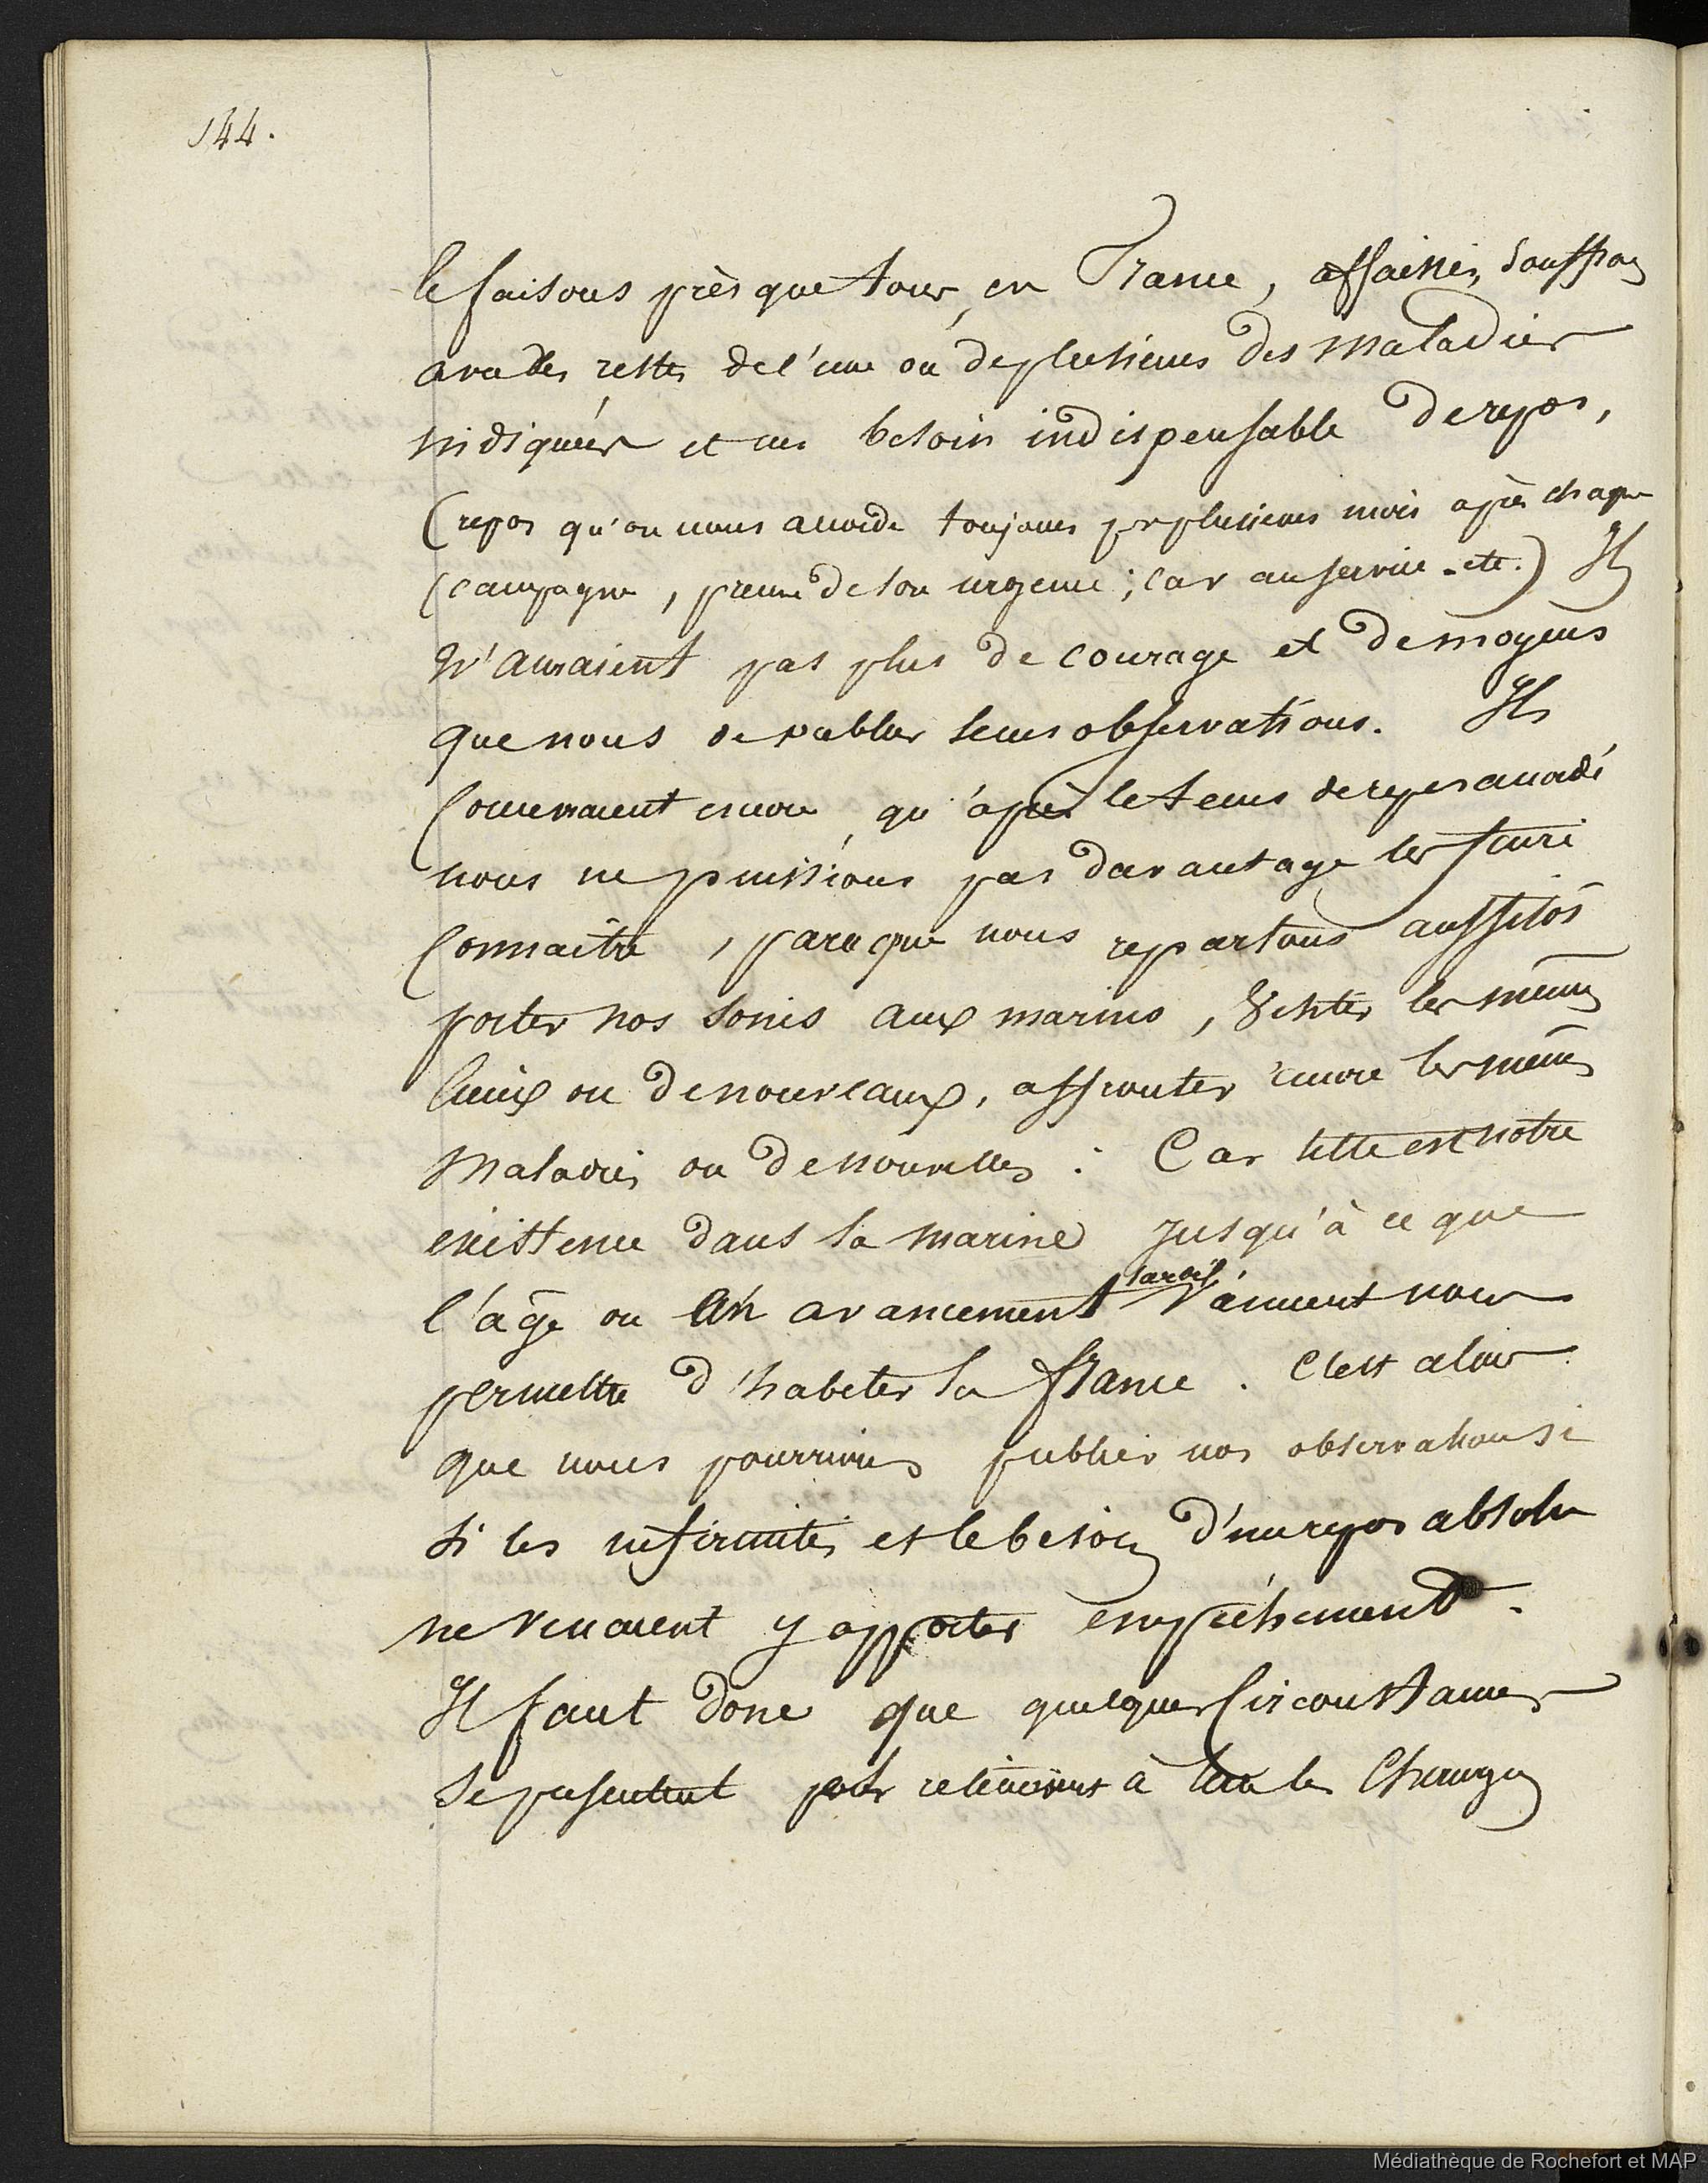 144.
le faisons près que tous, en France, affaissés, souffrans
avec les restes de l'une ou de plusieurs des maladies
indiquées et un besoin indispensable de repos,
(repos qu'on nous accorde toujours pr plusieurs mois après chaque
(campagne, preuve de son urgence; car au service - etc.) Ils
n'auraient pas plus de courage et de moyens
que nous de publier leurs observations. Ils
encore qu'après le tems de repos accordé
nous ne puissions pas davantage les faire
Connaître, parceque nous repartons aussitôt
porter nos soins aux marins, visiter les mêmes
lieux ou de nouveaux, affronter encore les mêmes
maladies ou de nouvelles : Car telle est notre
existence dans la marine jusqu'à ce que
l'âge ou un avancement tardif viennent nous
permettre d'habiter la france. C'est alors
que nous pourrions publier nos observations si
si les infirmités et le besoin d'un repos absolu
ne venaient y apporter empêchement.
Il faut donc que quelques Circonstances
se présentent pour à